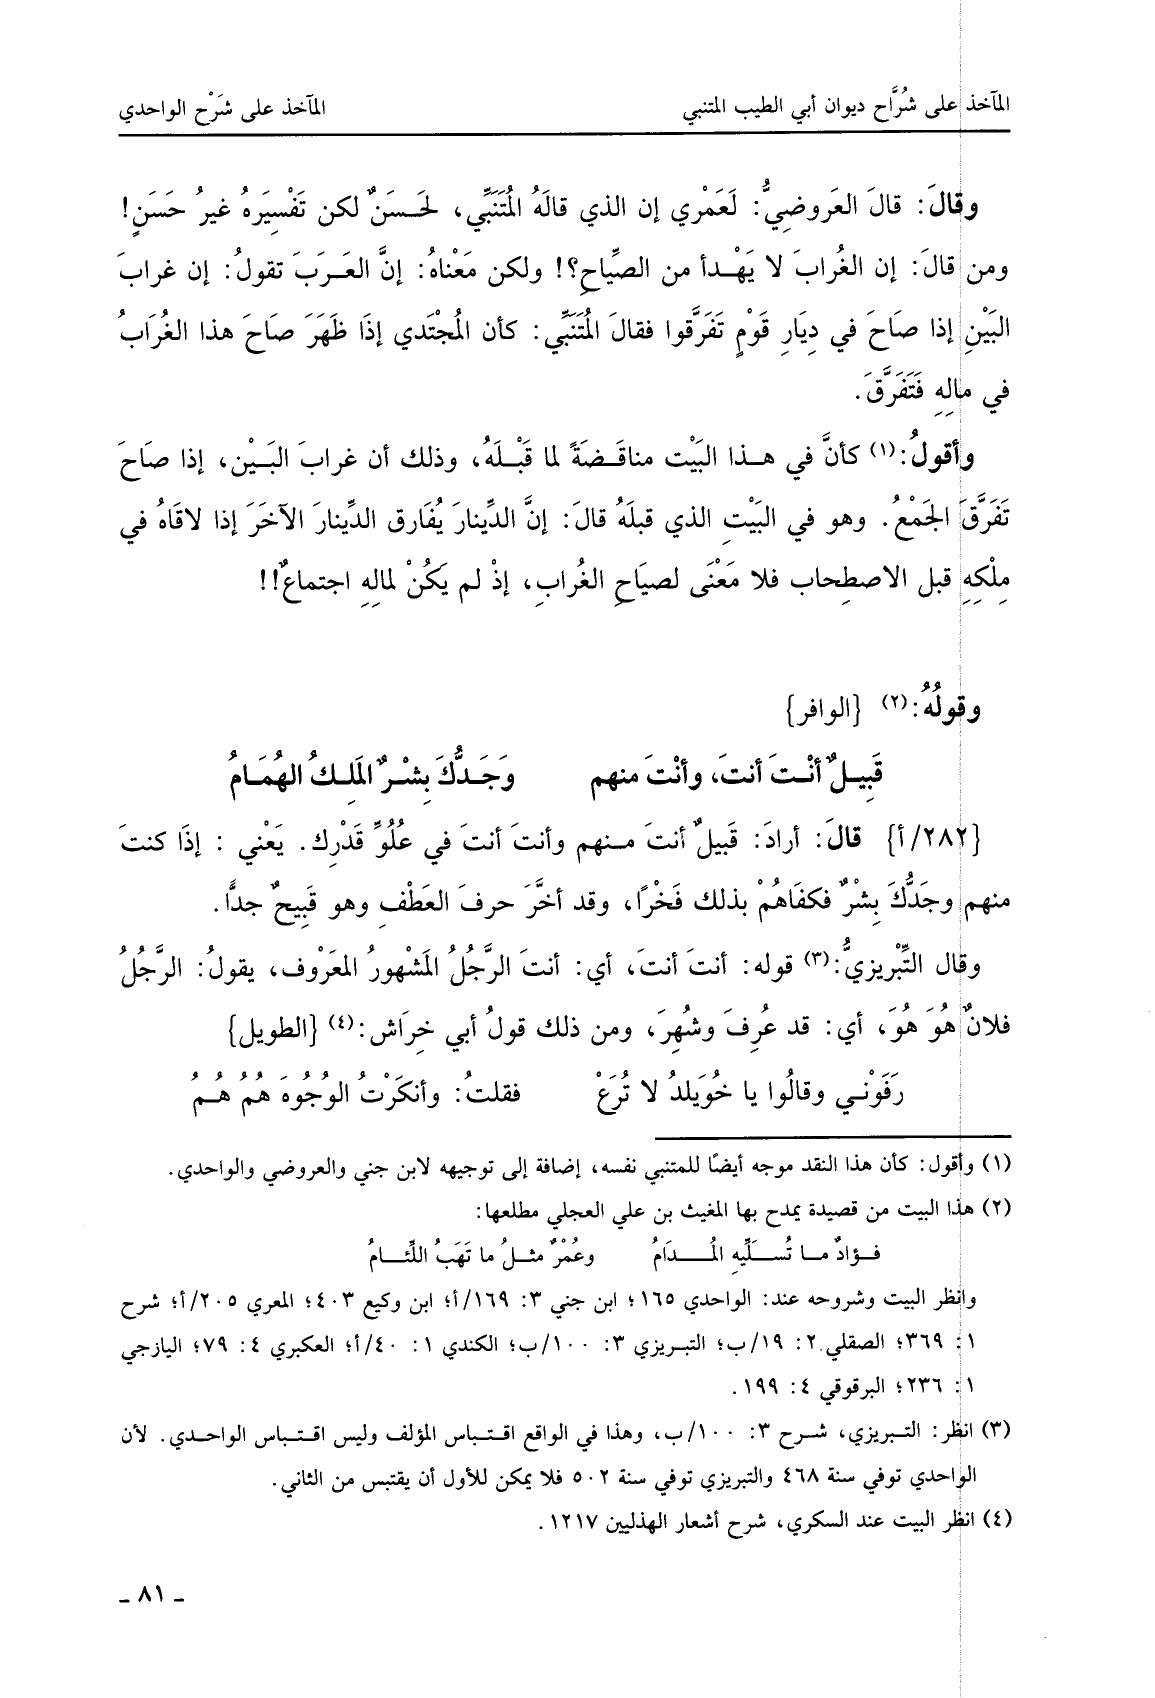 المآخذ على شُرَّاح ديوان أبي الطيب المتنبي المآخذ على شَرْح الواحدي
وقالَ: قالَ العَروضِيُّ: لَعَمْري إن الذي قالَهُ المُتَنَبِّي، لحَسَنٌ لكن تَفْسِيَرهُ غيرُ حَسَنٍ!
ومن قالَ: إن الغُرابَ لا يَهْدأ من الصِّياحِ؟! ولكن مَعْناهُ: إنَّ العَرَبَ تقولُ: إن غرابَ
البَيْنِ إذا صَاحَ في دِيَارِ قَوْمٍ تَفَرَّقوا فقالَ المُتَنَبِّي: كأن المُجْتَدي إذَا ظَهَرَ صَاحَ هذا الغُرَابُ
في مالِهِ فَتَفَرَّقَ.
وأقولُ:(١) كأنَّ في هذا البَيْت مناقَضَةً لما قَبْلَهُ، وذلك أن غرابَ البَيْن، إذا صاحَ
تَفَرَّقَ الجَمْعُ. وهو في البَيْتِ الذي قبلَهُ قالَ: إنَّ الدِّينارَ يُفَارق الدِّينارَ الآخَرَ إذا لاقَاهُ في
مِلْكِهِ قبل الاصطِحاب فلا مَعْنَى لصيَاحِ الغُرابِ، إذْ لم يَكُنْ لمالِهِ اجتماعٌ!!
وقولُهُ:(٢) {الوافر}
قَبِيلٌ أنْتَ أنتَ، وأنْتَ منهم وَجَدُّكَ بِشْرٌ المَلِكُ الهُمَامُ
{٢٨٢/أ} قالَ: أرادَ: قَبيلٌ أنتَ منهم وأنتَ أنتَ في عُلُوِّ قَدْرِك. يَعْني : إذَا كنتَ
منهم وجَدُّكَ بِشْرٌ فكفَاهُمْ بذلك فَخْرًا، وقد أخَّرَ حرفَ العَطْفِ وهو قَبِيحٌ جدًّا.
وقال التِّبْرِيزيُّ:(٣) قوله: أنتَ أنتَ، أي: أنتَ الرَّجُلُ المَشْهورُ المعَروْف، يقولُ: الرَّجُلُ
فلانٌ هُوَ هُوَ، أي: قد عُرِفَ وشُهِرَ، ومن ذلك قولُ أبي خِرَاش:(٤) {الطويل}
رَفَوْني وقالُوا يا خُوَيلدُ لا تُرَعْ فقلتُ: وأنكَرْتُ الوُجُوهَ هُمُ هُمُ
(١) وأقول: كأن هذا النقد موجه أيضًا للمتنبي نفسه، إضافة إلى توجيهه لابن جني والعروضي والواحدي.
(٢) هذا البيت من قصيدة يمدح بها المغيث بن علي العجلي مطلعها:
فؤادٌ ما تُسَلِّيهِ المُدَامُ وعُمْرٌ مثلُ ما تَهَبُ اللِّئَامُ
وانظر البيت وشروحه عند: الواحدي ١٦٥؛ ابن جني ٣: ١٦٩/أ؛ ابن وكيع ٤٠٣؛ المعري ٢٠٥/أ؛ شرح
١: ٣٦٩؛ الصقلي ٢: ١٩/ب؛ التبريزي ٣: ١٠٠/ب؛ الكندي ١: ٤٠/أ؛ العكبري ٤: ٧٩؛ اليازجي
١: ٢٣٦؛ البرقوقي ٤: ١٩٩.
(٣) انظر: التبريزي، شرح ٣: ١٠٠/ب، وهذا في الواقع اقتباس المؤلف وليس اقتباس الواحدي. لأن
الواحدي توفي سنة ٤٦٨ والتبريزي توفي سنة ٥٠٢ فلا يمكن للأول أن يقتبس من الثاني.
(٤) انظر البيت عند السكري، شرح أشعار الهذليين ١٢١٧.
ـ ٨١ ـ